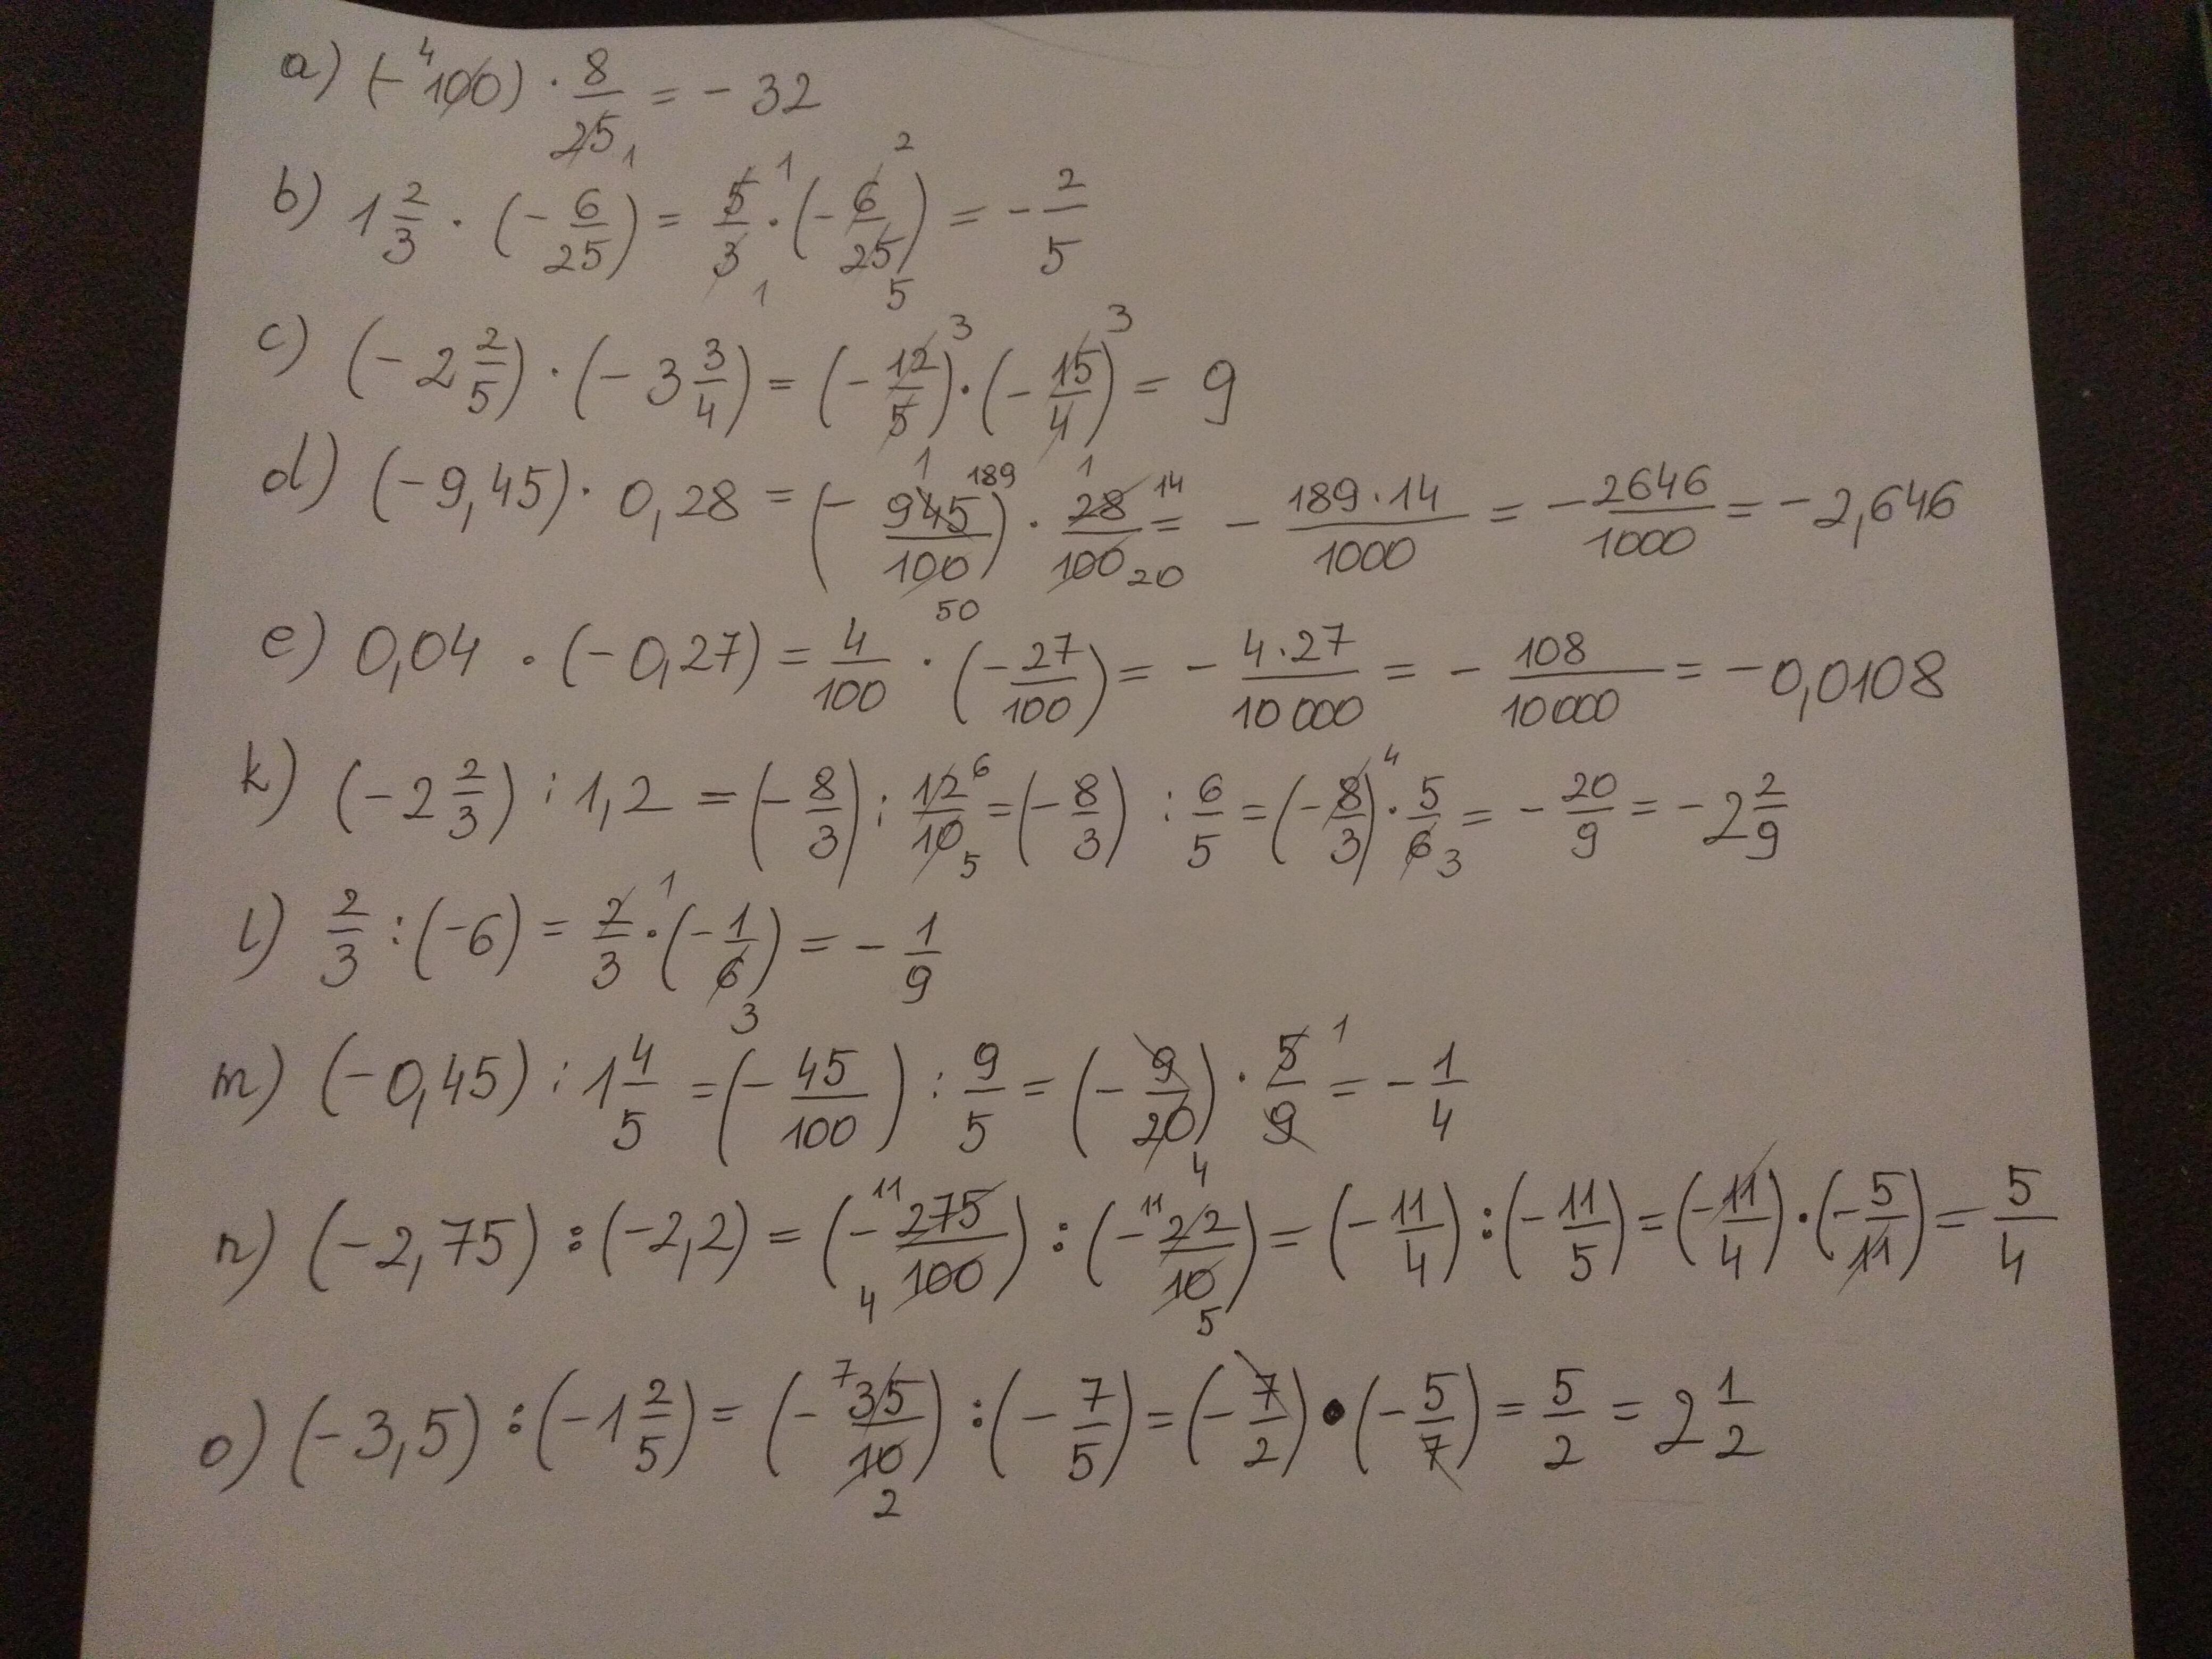 a) (-⁴100) · 8/25₁ = -32
b) 1 2/3 · (- 6/25) = 5¹/3₁ · (- 6²/25₅) = - 2/5
c) (- 2 2/5) · (- 3 3/4) = (- 12³/5₁) · (- 15³/4₁) = 9
d) (-9,45) · 0,28 = (- 945¹⁸⁹/100₅₀) · 28¹⁴/100₂₀ = - 189·14/1000 = - 2646/1000 = -2,646
e) 0,04 · (-0,27) = 4/100 · (- 27/100) = - 4·27/10 000 = - 108/10 000 = -0,0108
k) (-2 2/3) : 1,2 = (- 8/3) : 12⁶/10₅ = (- 8/3) : 6/5 = (- 8⁴/3) · 5/6₃ = - 20/9 = - 2 2/9
l) 2/3 : (-6) = 2¹/3 · (- 1/6₃) = - 1/9
m) (-0,45) : 1 4/5 = (- 45/100) : 9/5 = (- 9/20₄) · 5¹/9 = - 1/4
n) (-2,75) : (-2,2) = (- ¹¹275/₄100) : (- ¹¹22/10₅) = (- 11/4) : (- 11/5) = (- 11/4) · (- 5/11) = 5/4
o) (-3,5) : (-1 2/5) = (- ⁷35/10₂) : (- 7/5) = (- 7/2) · (- 5/7) = 5/2 = 2 1/2